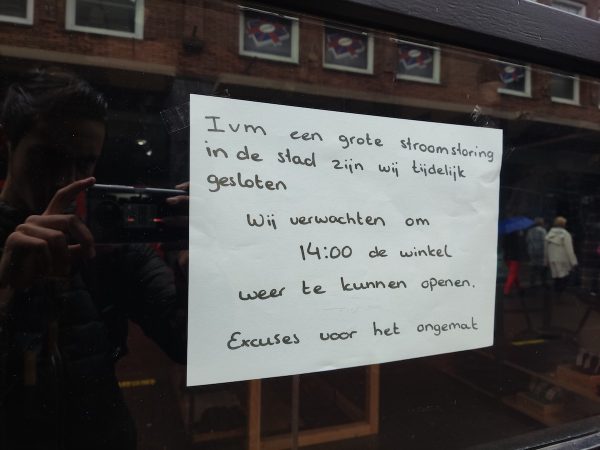 Ivm een grote stroomstoring
in de stad zijn wij tijdelijk
gesloten
Wij verwachten om
14:00 de winkel
weer te kunnen openen.
Excuses voor het ongemat